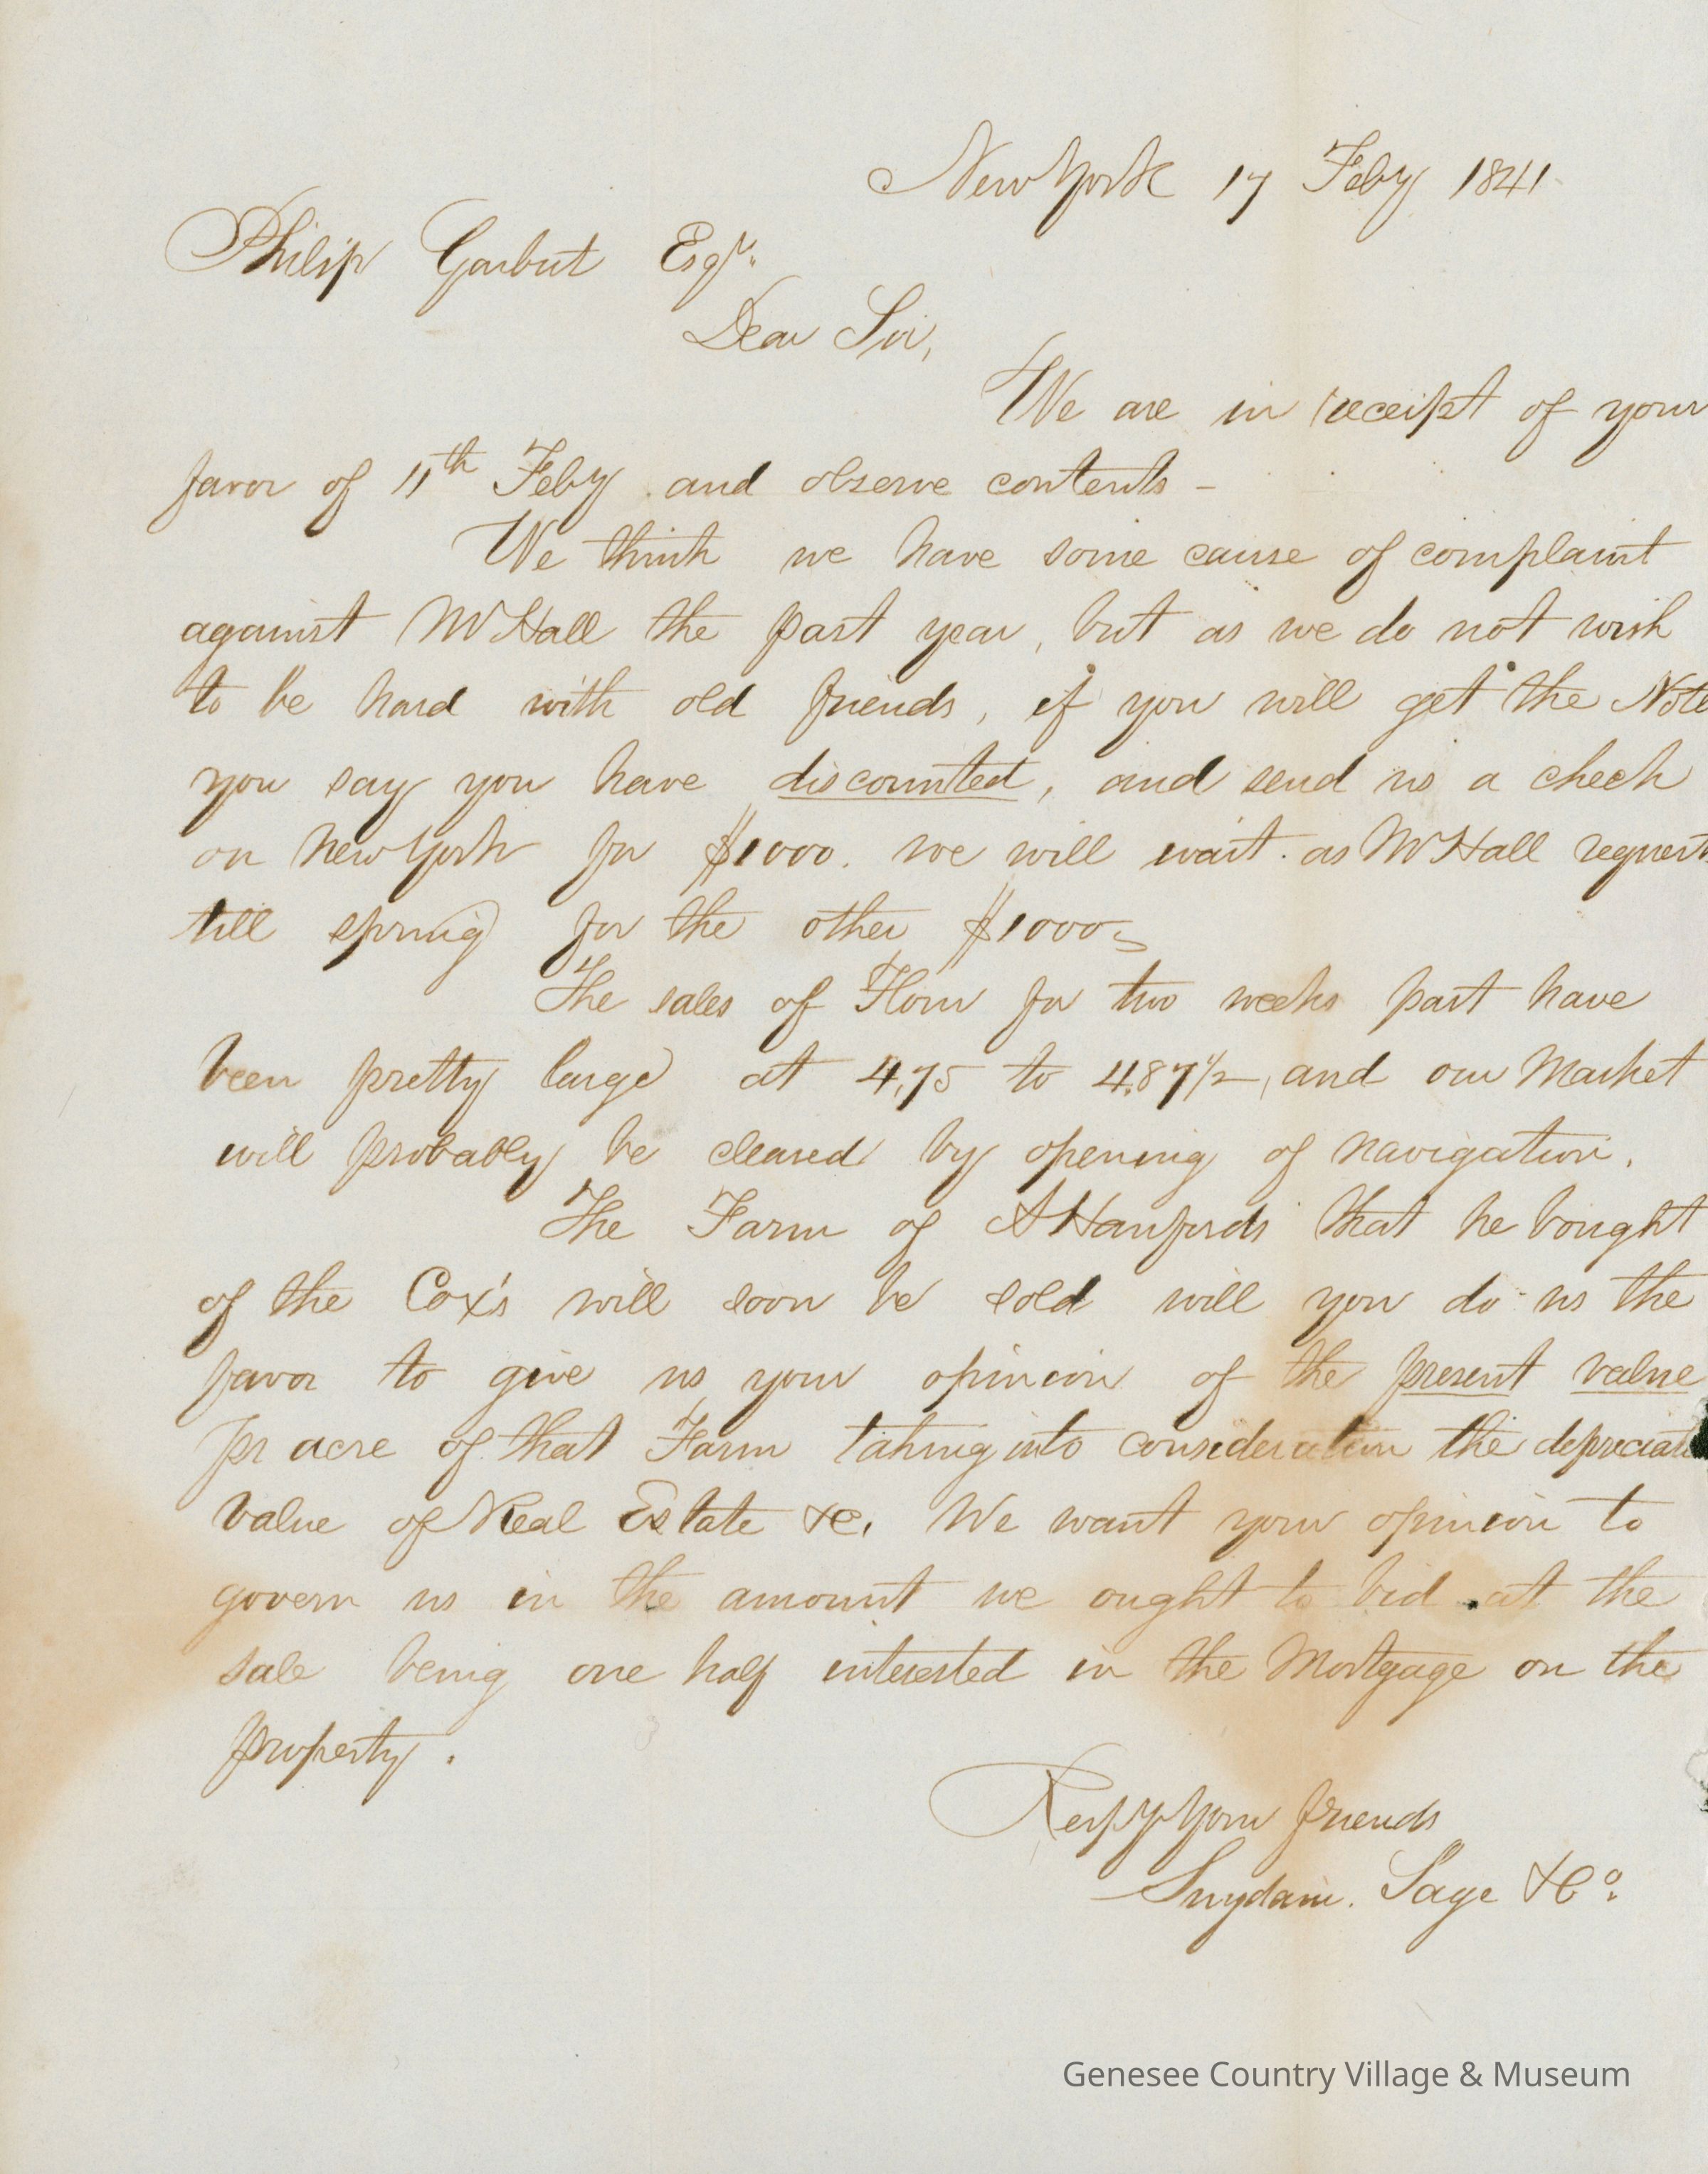 New York 17 Feby 1841
Philip Garbut Esqr.
Dear Sir,
We are in receipt of your
favor of 11th Feby and observe contents -
We think we have some cause of complaint
against Mr Hall the past year, but as we do not wish
to be hard with old friends, if you will get the Note
you say you have discounted, and send us a check
on New York for $1000. we will wait as Mr Hall requests
till spring for the other $1000
The sales of Flour for two weeks past have
been pretty large at 4,75 to 4.87 1/2, and our Market
will probably be cleared by opening of navigation.
The Farm of A Hanfords that he bought
of the Cox's will soon be sold will you do us the
favor to give us your opinion of the present value
pr acre of that Farm taking into consideration the
value of Real Estate &c. We want your opinion to
govern us in the amount we ought to bid at the
sale being one half interested in the Mortgage on the
property.
Respy Your friends
Suydam. Sage & Co.
Genesee Country Village & Museum